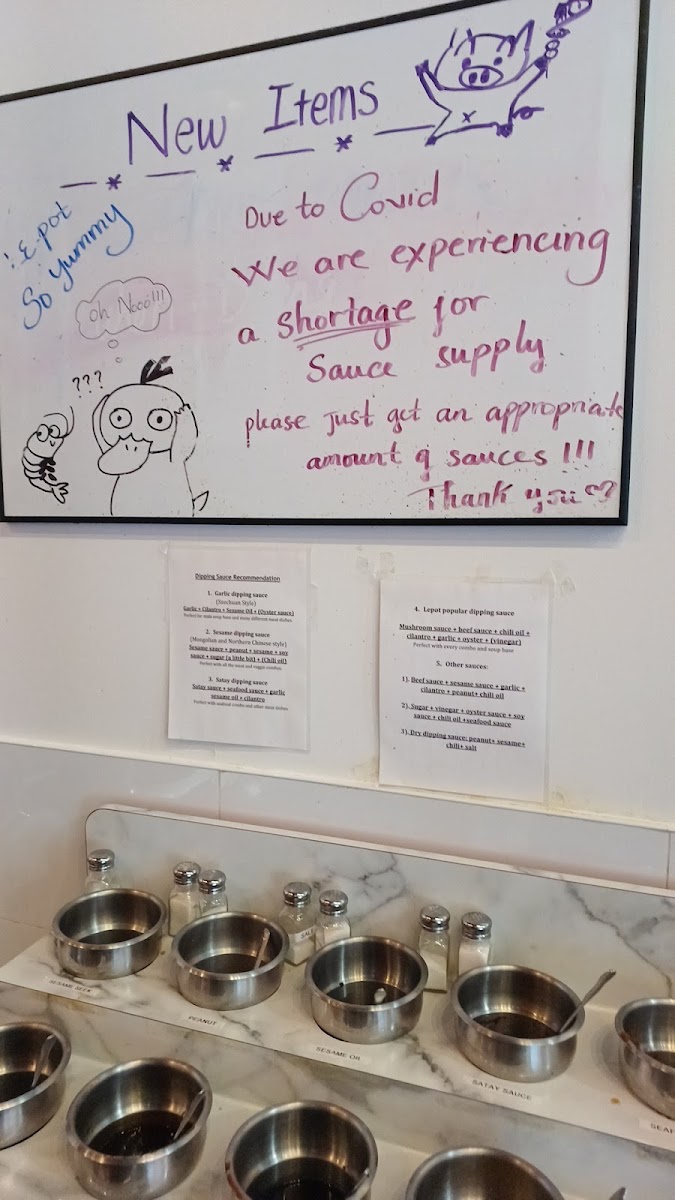 New Items
Due to Covid
We are experiencing
a shortage for
Sauce supply
please just get an appropriate
amount of sauces !!!
Thank you
So Yummy
oh Nooo!!!
???
Dipping Sauce Recommendation
1. Garlic dipping sauce
(Szechuan Style)
Garlic + Cilantro + Sesame Oil + (Oyster sauce)
Perfect for main soup base and many different meat dishes
2. Sesame dipping sauce
(Mongolian and Northern Chinese style)
Sesame sauce + peanut + sesame + soy
sauce + sugar (a little bit) + (Chili oil)
Perfect with all the meat and veggie combos
3. Satay dipping sauce
Satay sauce + seafood sauce + garlic
sesame oil + cilantro
Perfect with seafood combo and other meat dishes
4. Lepot popular dipping sauce
Mushroom sauce + beef sauce + chili oil +
cilantro + garlic + oyster + (vinegar)
Perfect with every combo and soup base
5. Other sauces:
1). Beef sauce + sesame sauce + garlic +
cilantro + peanut+ chili oil
2). Sugar + vinegar + oyster sauce + soy
sauce + chili oil +seafood sauce
3). Dry dipping sauce: peanut+ sesame+
chili+ salt
SESAME SEED
PEANUT
SESAME OIL
SATAY SAUCE